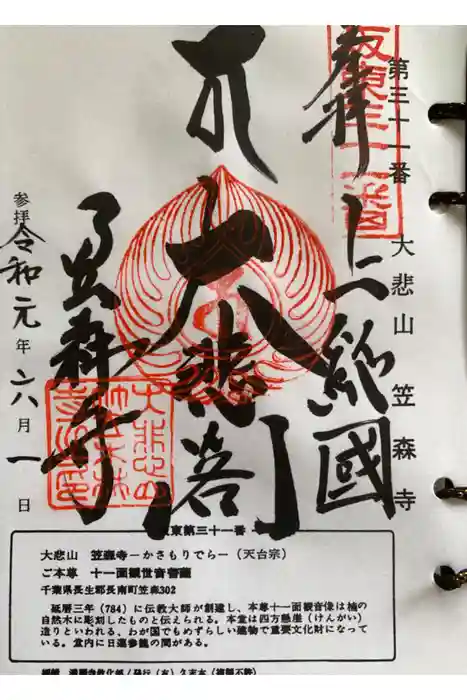 第三十一番 大悲山 笠森寺
坂東三十一番
奉拝
大悲閣
笠森寺
参拝 令和元年六月一日
坂東第三十一番
大悲山 笠森寺―かさもりでら―(天台宗)
ご本尊 十一面観世音菩薩
千葉県長生郡長南町笠森302
延暦三年(784)に伝教大師が創建し、本尊十一面観音像は楠の
自然木に彫刻したものと伝えられる。本堂は四方懸崖(けんがい)
造りといわれる、わが国でもめずらしい建物で重要文化財になって
いる。堂内に日蓮参籠の間がある。